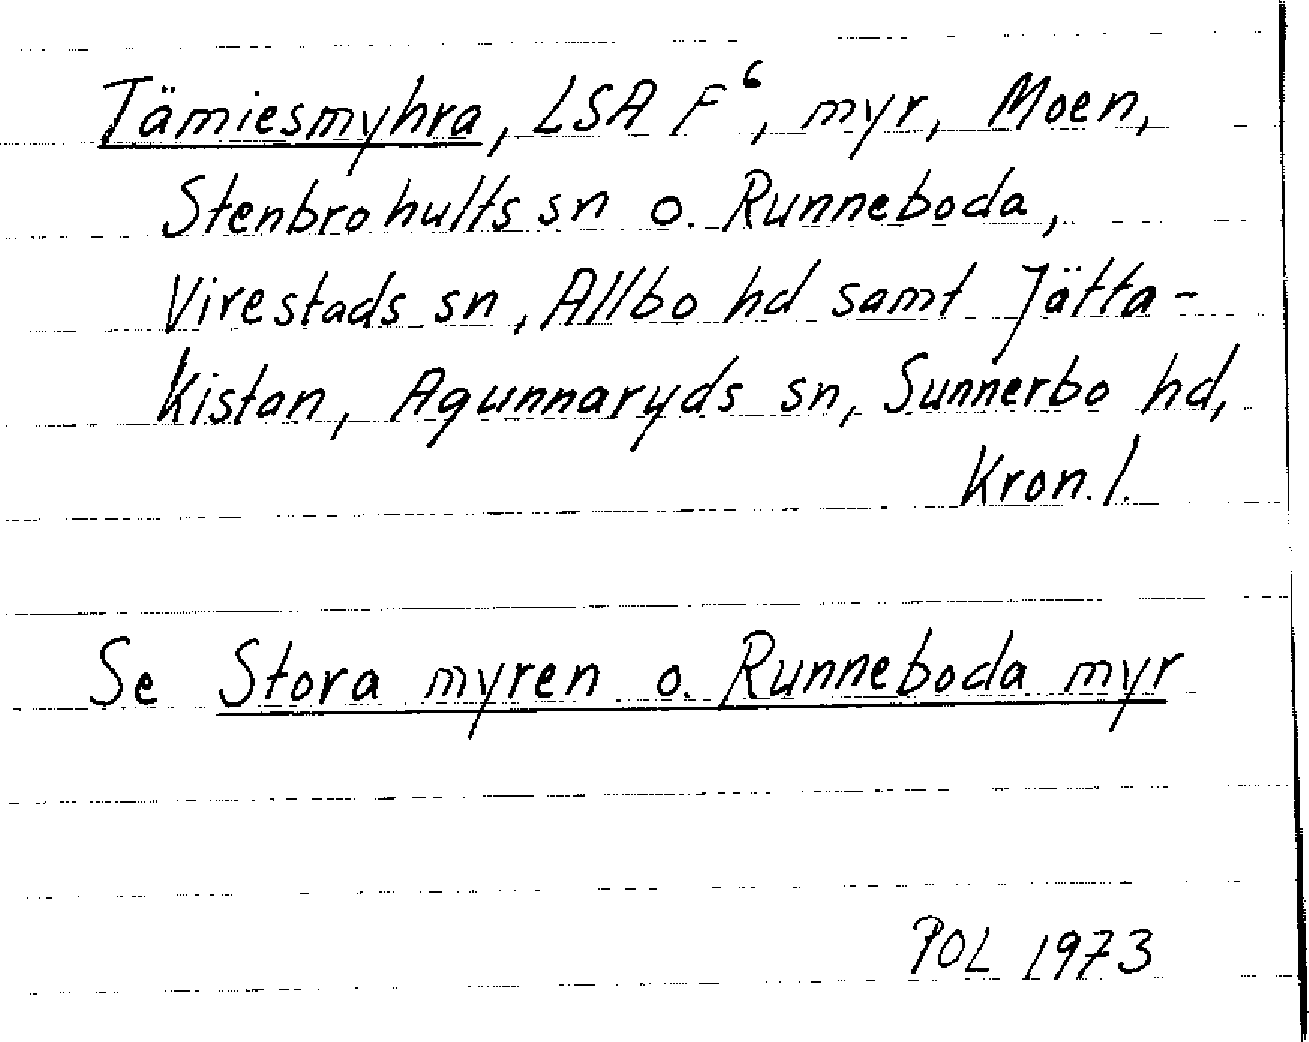 Tämiesmyhra, LSA F⁶, myr, Moen,
Stenbrohults sn o. Runneboda,
Virestads sn, Allbo hd samt Jätta-
Kistan, Agunnaryds sn, Sunnerbo hd,
Kron. l.
Se Stora myren o. Runneboda myr
POL 1973